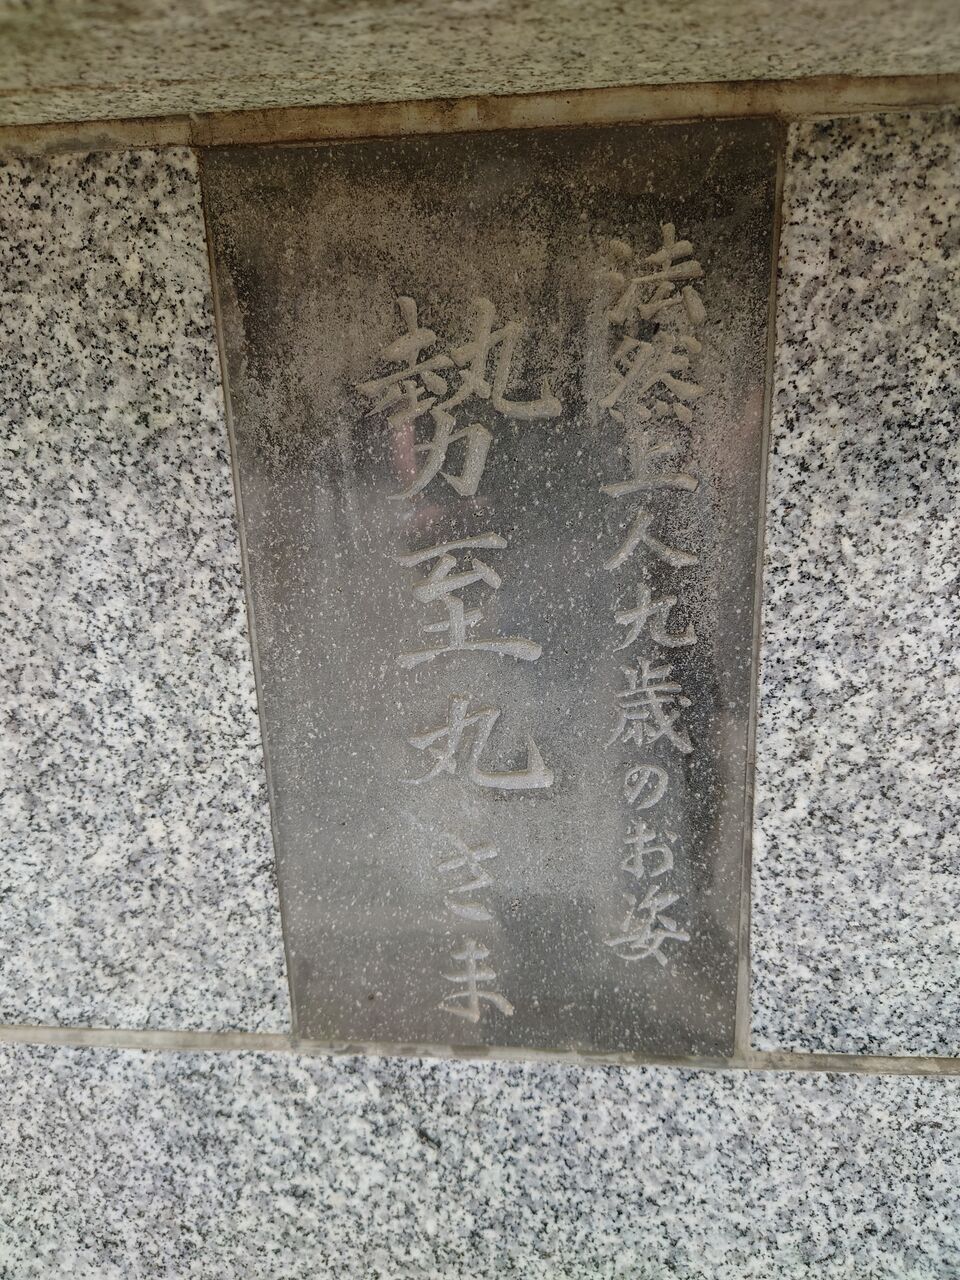 法然上人九歳のお姿
勢至丸さま